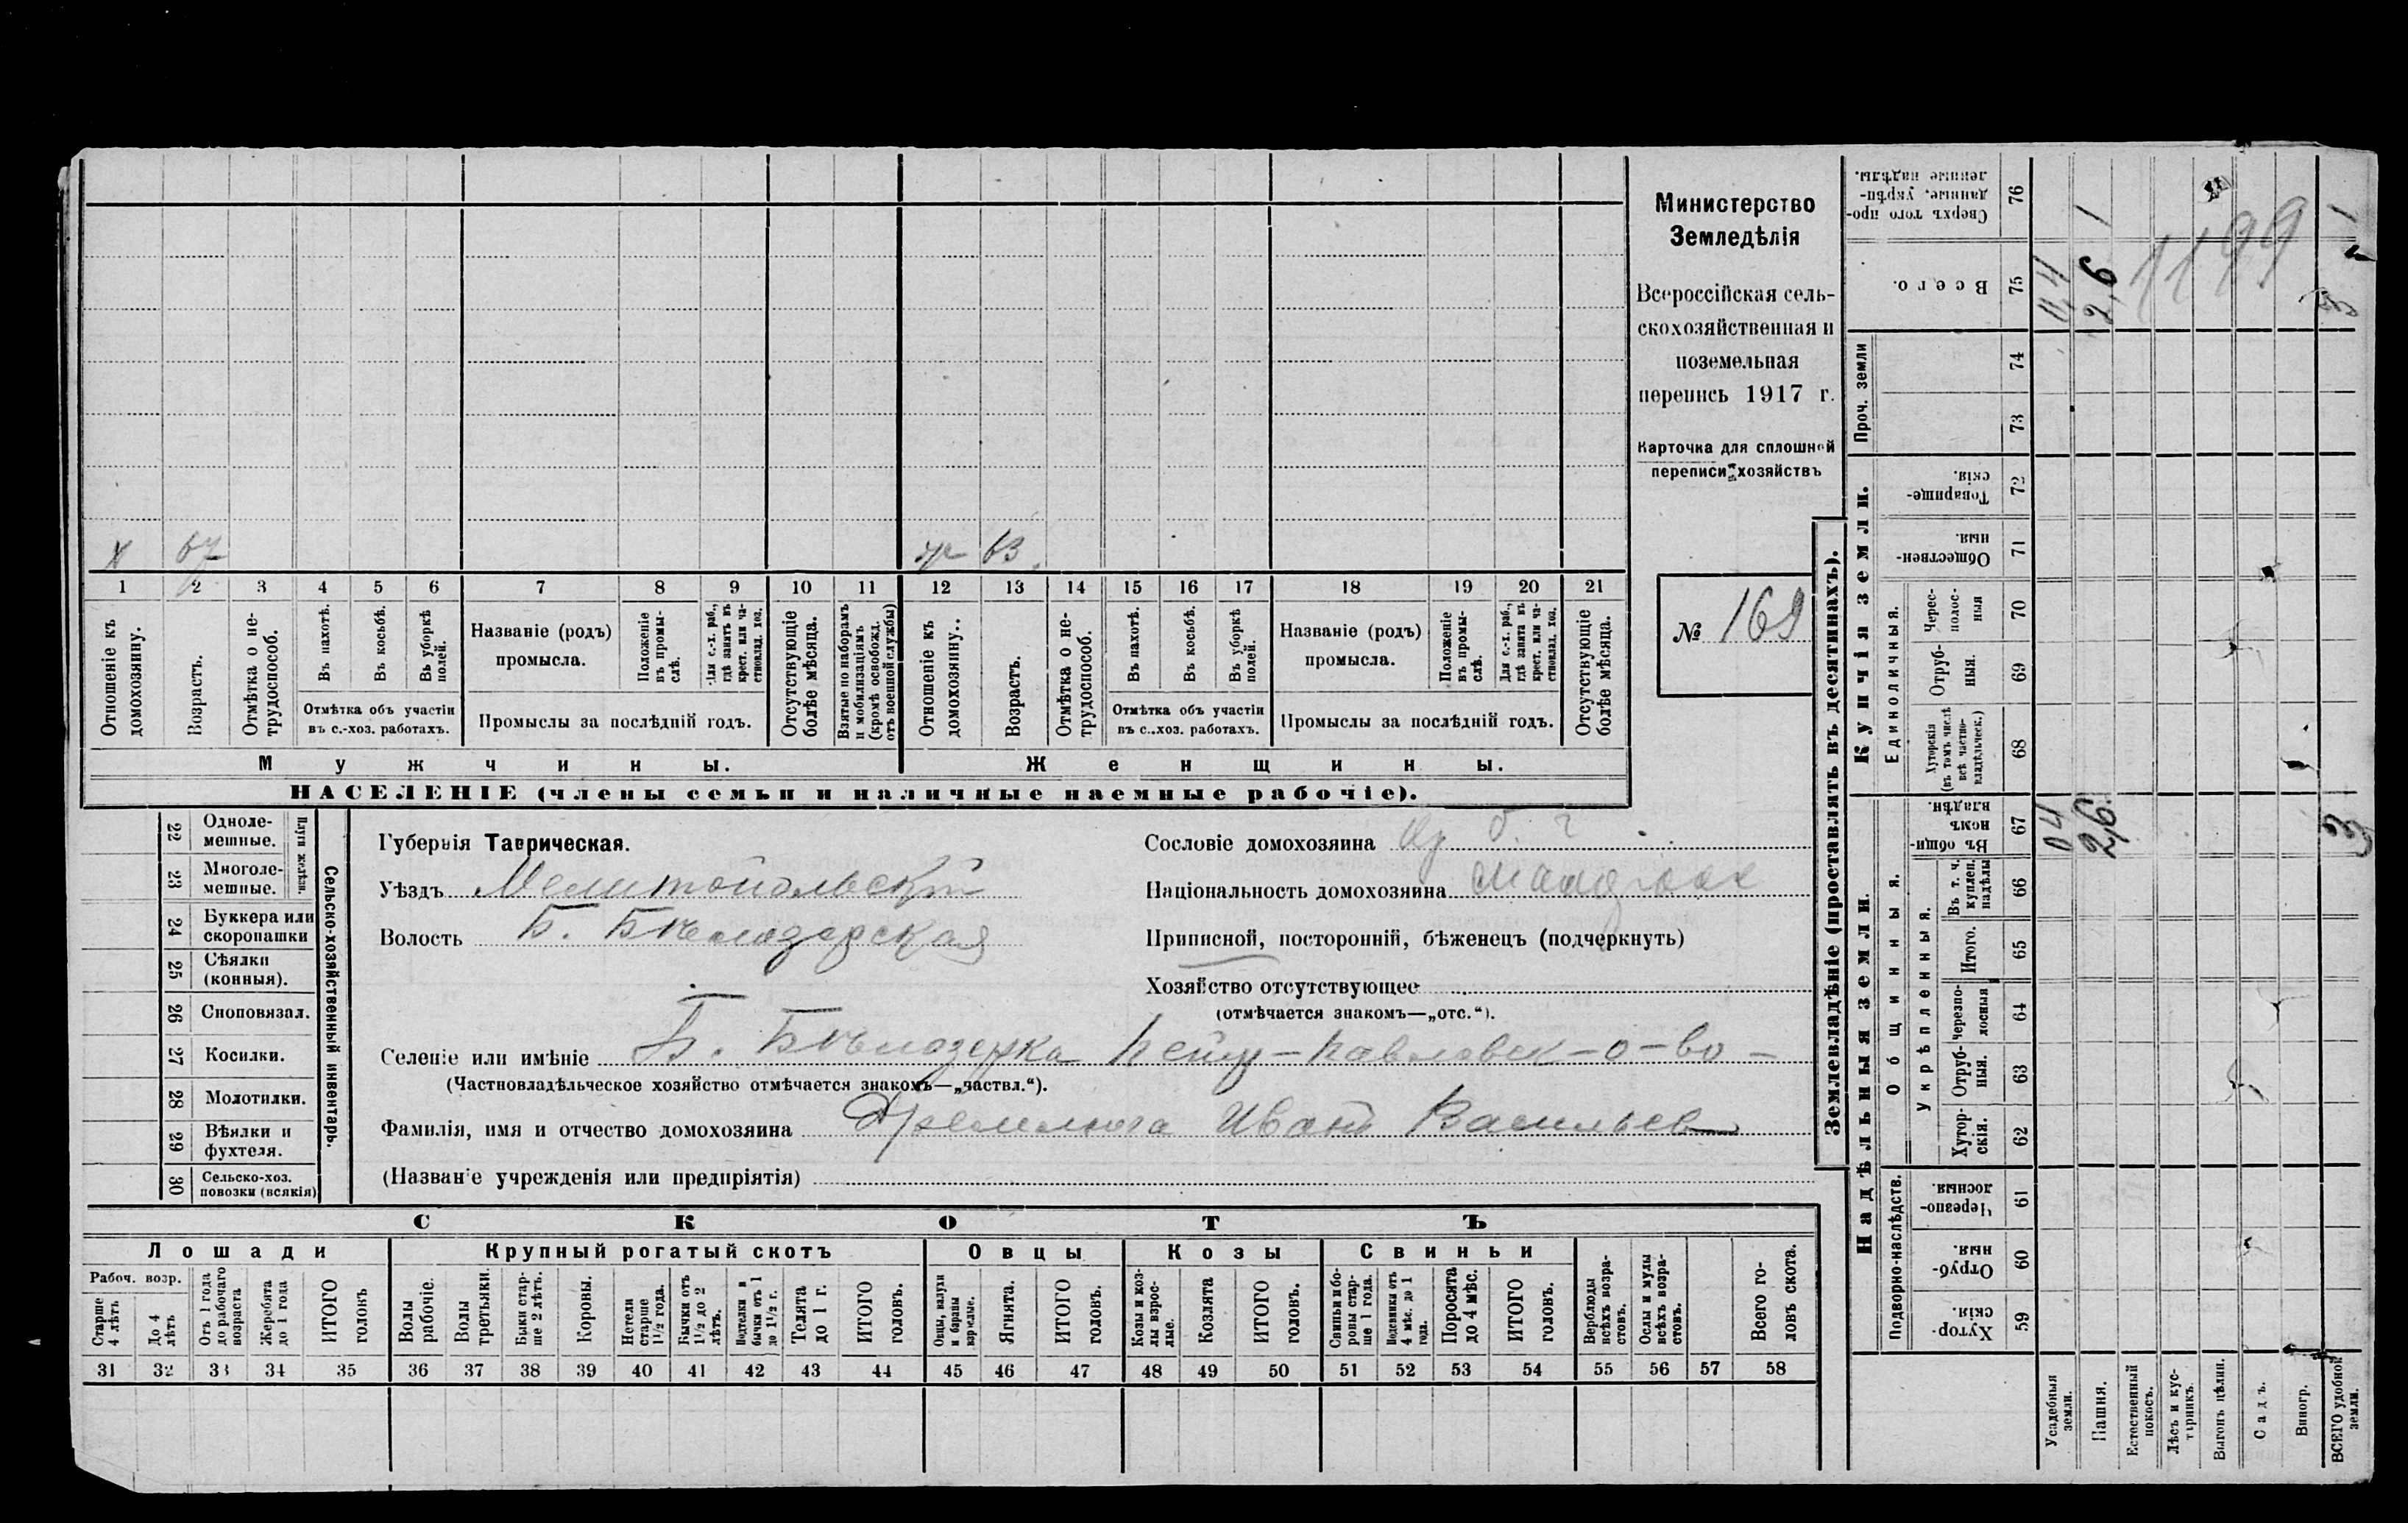 Министерство
Земледѣлія
Всероссійская сель-
скохозяйственная и
поземельная
перепись 1917 г.
Карточка для сплошной
переписи хозяйствъ
№ 169
х 67 63
1 2 3 4 5 6 7 8 9 10 11 12 13 14 15 16 17 18 19 20 21
Отношеніе къ домохозяину.
Возрастъ.
Отмѣтка о не-трудоспособ.
Въ пахотѣ.
Въ косьбѣ.
Въ уборкѣ полей.
Отмѣтка объ участіи
въ с.-хоз. работахъ.
Названіе (родъ)
промысла.
Положеніе въ промы-слѣ.
Для с.-х. раб., гдѣ занятъ въ крест. или ча-стновлад. хоз.
Промыслы за послѣдній годъ.
Отсутствующіе болѣе мѣсяца.
Взятые по наборамъ и мобилизаціямъ (кромѣ освобожд. отъ военной службы)
Отношеніе къ домохозяину..
Возрастъ.
Отмѣтка о не-трудоспособ.
Въ пахотѣ.
Въ косьбѣ.
Въ уборкѣ полей.
Отмѣтка объ участіи
въ с..хоз. работахъ.
Названіе (родъ)
промысла.
Положеніе въ промы-слѣ.
Для с.-х. раб., гдѣ занята въ крест. или ча-стновлад. хоз.
Промыслы за послѣдній годъ.
Отсутствующіе болѣе мѣсяца.
Мужчины.
Женщины.
НАСЕЛЕНІЕ (члены семьи и наличные наемные рабочіе).
22 Одноле-мешные.
23 Многоле-мешные.
Плуги желѣзн.
24 Буккера или скоропашки
25 Сѣялки (конныя).
26 Сноповязал.
27 Косилки.
28 Молотилки.
29 Вѣялки и фухтеля.
30 Сельско-хоз. повозки (всякія)
Сельско-хозяйственный инвентарь.
Губернія Таврическая.
Уѣздъ Мелитопольскій
Волость Б. Бѣлозерская
Сословіе домохозяина
Національность домохозяина
Приписной, посторонній, бѣженецъ (подчеркнуть)
Хозяйство отсутствующее
(отмѣчается знакомъ—„отс.“).
Селеніе или имѣніе Б. Бѣлозерка Петр-Павловск-о-во-
(Частновладѣльческое хозяйство отмѣчается знакомъ—„частвл.“).
Фамилія, имя и отчество домохозяина Дремлюга Иванъ Васильев
(Названіе учрежденія или предпріятія)
СКОТЪ
Лошади
Крупный рогатый скотъ
Овцы
Козы
Свиньи
Рабоч. возр.
Старше 4 лѣтъ
До 4 лѣтъ
Отъ 1 года до рабочаго возраста
Жеребята до 1 года
ИТОГО головъ
Волы рабочіе.
Волы третьяки.
Быки стар-ше 2 лѣтъ.
Коровы.
Нетели старше 1½ года.
Бычки отъ 1½ до 2 лѣтъ.
Подтелки и бычки отъ 1 до 1½ г.
Телята до 1 г.
ИТОГО головъ.
Овцы, валухи и бараны взрослые.
Ягнята.
ИТОГО головъ.
Козы и коз-лы взрос-лые.
Козлята
ИТОГО головъ.
Свиньи и бо-ровы стар-ше 1 года.
Подсвинки отъ 4 мѣс. до 1 года.
Поросята до 4 мѣс.
ИТОГО головъ.
Верблюды всѣхъ возра-стовъ.
Ослы и мулы всѣхъ возра-стовъ.
Всего го-ловъ скота.
31 32 33 34 35 36 37 38 39 40 41 42 43 44 45 46 47 48 49 50 51 52 53 54 55 56 57 58
Землевладѣніе (проставлять въ десятинахъ).
Надѣльныя земли.
Купчія земли.
Проч. земли
Подворно-наслѣдств.
Общинныя.
Укрѣпленныя.
Единоличныя.
Хутор-скія. 59
Отруб-ныя. 60
Черезпо-лосныя. 61
Хутор-скія. 62
Отруб-ныя. 63
Черезпо-лосныя 64
Итого. 65
Въ т. ч. куплен. надѣлы 66
Въ общи-номъ владѣн. 67
Хуторскія (въ томъ числѣ всѣ частно-владѣльческ.) 68
Отруб-ныя. 69
Черес-полос-ныя 70
Обществен-ныя. 71
Товарище-скія. 72
73
74
Всего. 75
Сверхъ того про-данные, укрѣп-ленные надѣлы. 76
Усадебныя земли. 04 0,4
Пашня. 2,6 2,6
Естественный покосъ.
Лѣсъ и кус-тарникъ.
Выгонъ цѣлин.
Садъ.
Виногр.
ВСЕГО удобной земли. 3 3
1199